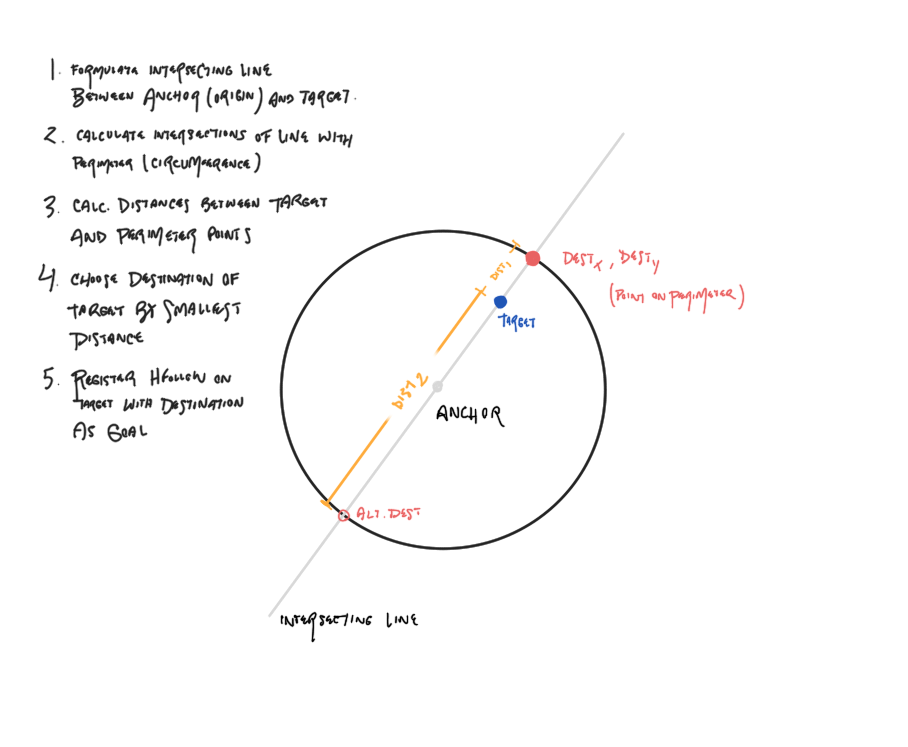 1. FORMULATE INTERSECTING LINE
BETWEEN ANCHOR (ORIGIN) AND TARGET.
2. CALCULATE INTERSECTIONS OF LINE WITH
PERIMETER (CIRCUMFERENCE)
3. CALC. DISTANCES BETWEEN TARGET
AND PERIMETER POINTS
4. CHOOSE DESTINATION OF
TARGET BY SMALLEST
DISTANCE
5. REGISTER HFOLLOW ON
TARGET WITH DESTINATION
AS GOAL
DIST1
DESTX, DESTY
(POINT ON PERIMETER)
TARGET
DIST2
ANCHOR
ALT. DEST
INTERSECTING LINE